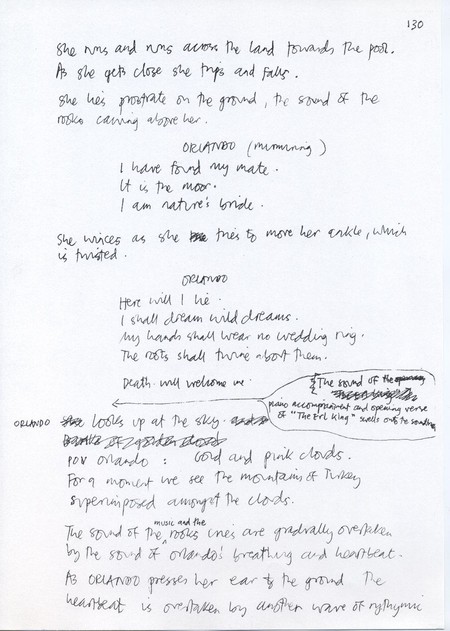 130
She runs and runs across the land towards the pool.
As she gets close she trips and falls.
She lies prostrate on the ground, the sound of the
rooks cawing above her.
ORLANDO (murmuring)
I have found my mate.
It is the moor.
I am nature's bride.
She winces as she tries to move her ankle, which
is twisted.
ORLANDO
Here will I lie.
I shall dream wild dreams.
My hands shall wear no wedding ring.
The roots shall twine about them.
Death will welcome me.
The sound of the opening
piano accompaniment and opening verse
of "The Erl King" swells onto the soundtrack
ORLANDO looks up at the sky.
POV Orlando: Gold and pink clouds.
For a moment we see the mountains of Turkey
superimposed amongst the clouds.
music and the
The sound of the rooks cries are gradually overtaken
by the sound of Orlando's breathing and heartbeat.
As ORLANDO presses her ear to the ground the
heartbeat is overtaken by another wave of rhythmic